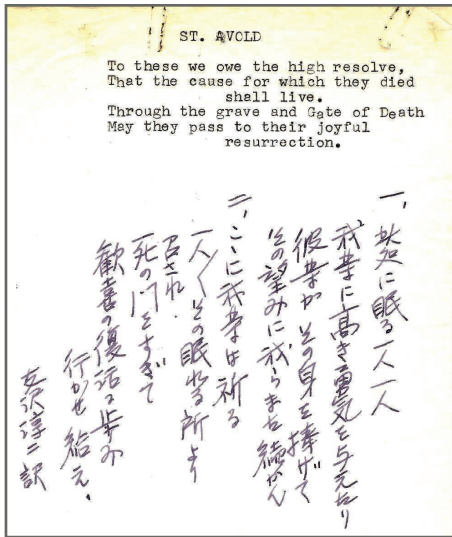 ST. AVOLD
To these we owe the high resolve,
That the cause for which they died
shall live.
Through the grave and Gate of Death
May they pass to their joyful
resurrection.
一、此処に眠る一人一人
我等に高き勇気を与えたり
彼等が その身を捧げて
その望みに我らまた続かん
二、こゝに我等は祈る
一人〳〵その眠れる所より
召され、
死の門をすぎて
歓喜の復活に歩み
行かせ 給え、
淳二訳